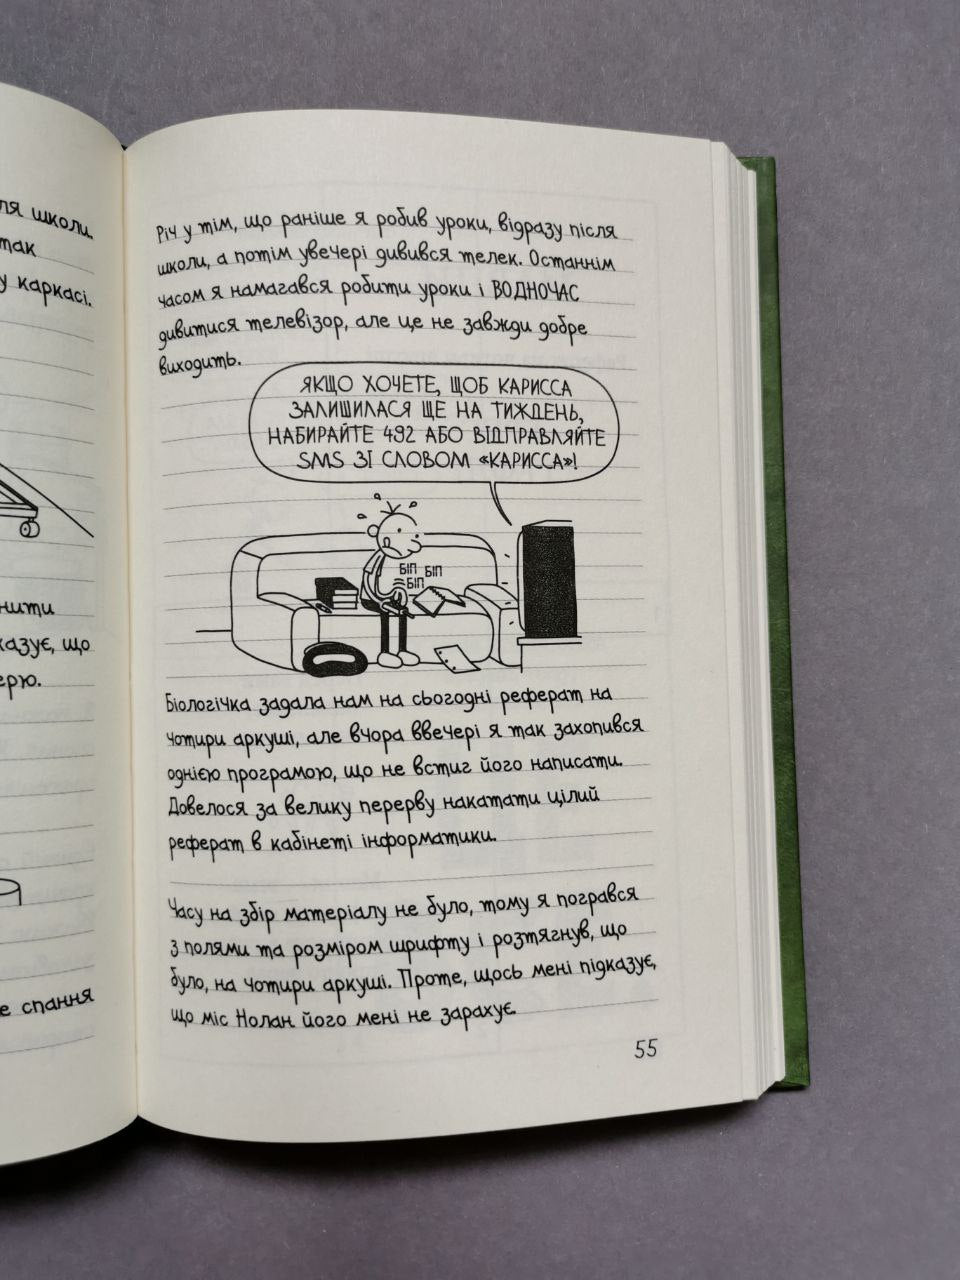 ля школи.
так
у каркасі.
нити
казує, що
ерю.
е спання
Річ у тім, що раніше я робив уроки, відразу після
школи, а потім увечері дивився телек. Останнім
часом я намагався робити уроки і ВОДНОЧАС
дивитися телевізор, але це не завжди добре
виходить.
ЯКЩО ХОЧЕТЕ, ЩОБ КАРИССА
ЗАЛИШИЛАСЯ ЩЕ НА ТИЖДЕНЬ,
НАБИРАЙТЕ 492 АБО ВІДПРАВЛЯЙТЕ
SMS ЗІ СЛОВОМ «КАРИССА»!
БІП БІП
БІП
Біологічка задала нам на сьогодні реферат на
чотири аркуші, але вчора ввечері я так захопився
однією програмою, що не встиг його написати.
Довелося за велику перерву накатати цілий
реферат в кабінеті інформатики.
Часу на збір матеріалу не було, тому я погрався
з полями та розміром шрифту і розтягнув, що
було, на чотири аркуші. Проте, щось мені підказує,
що міс Нолан його мені не зарахує.
55